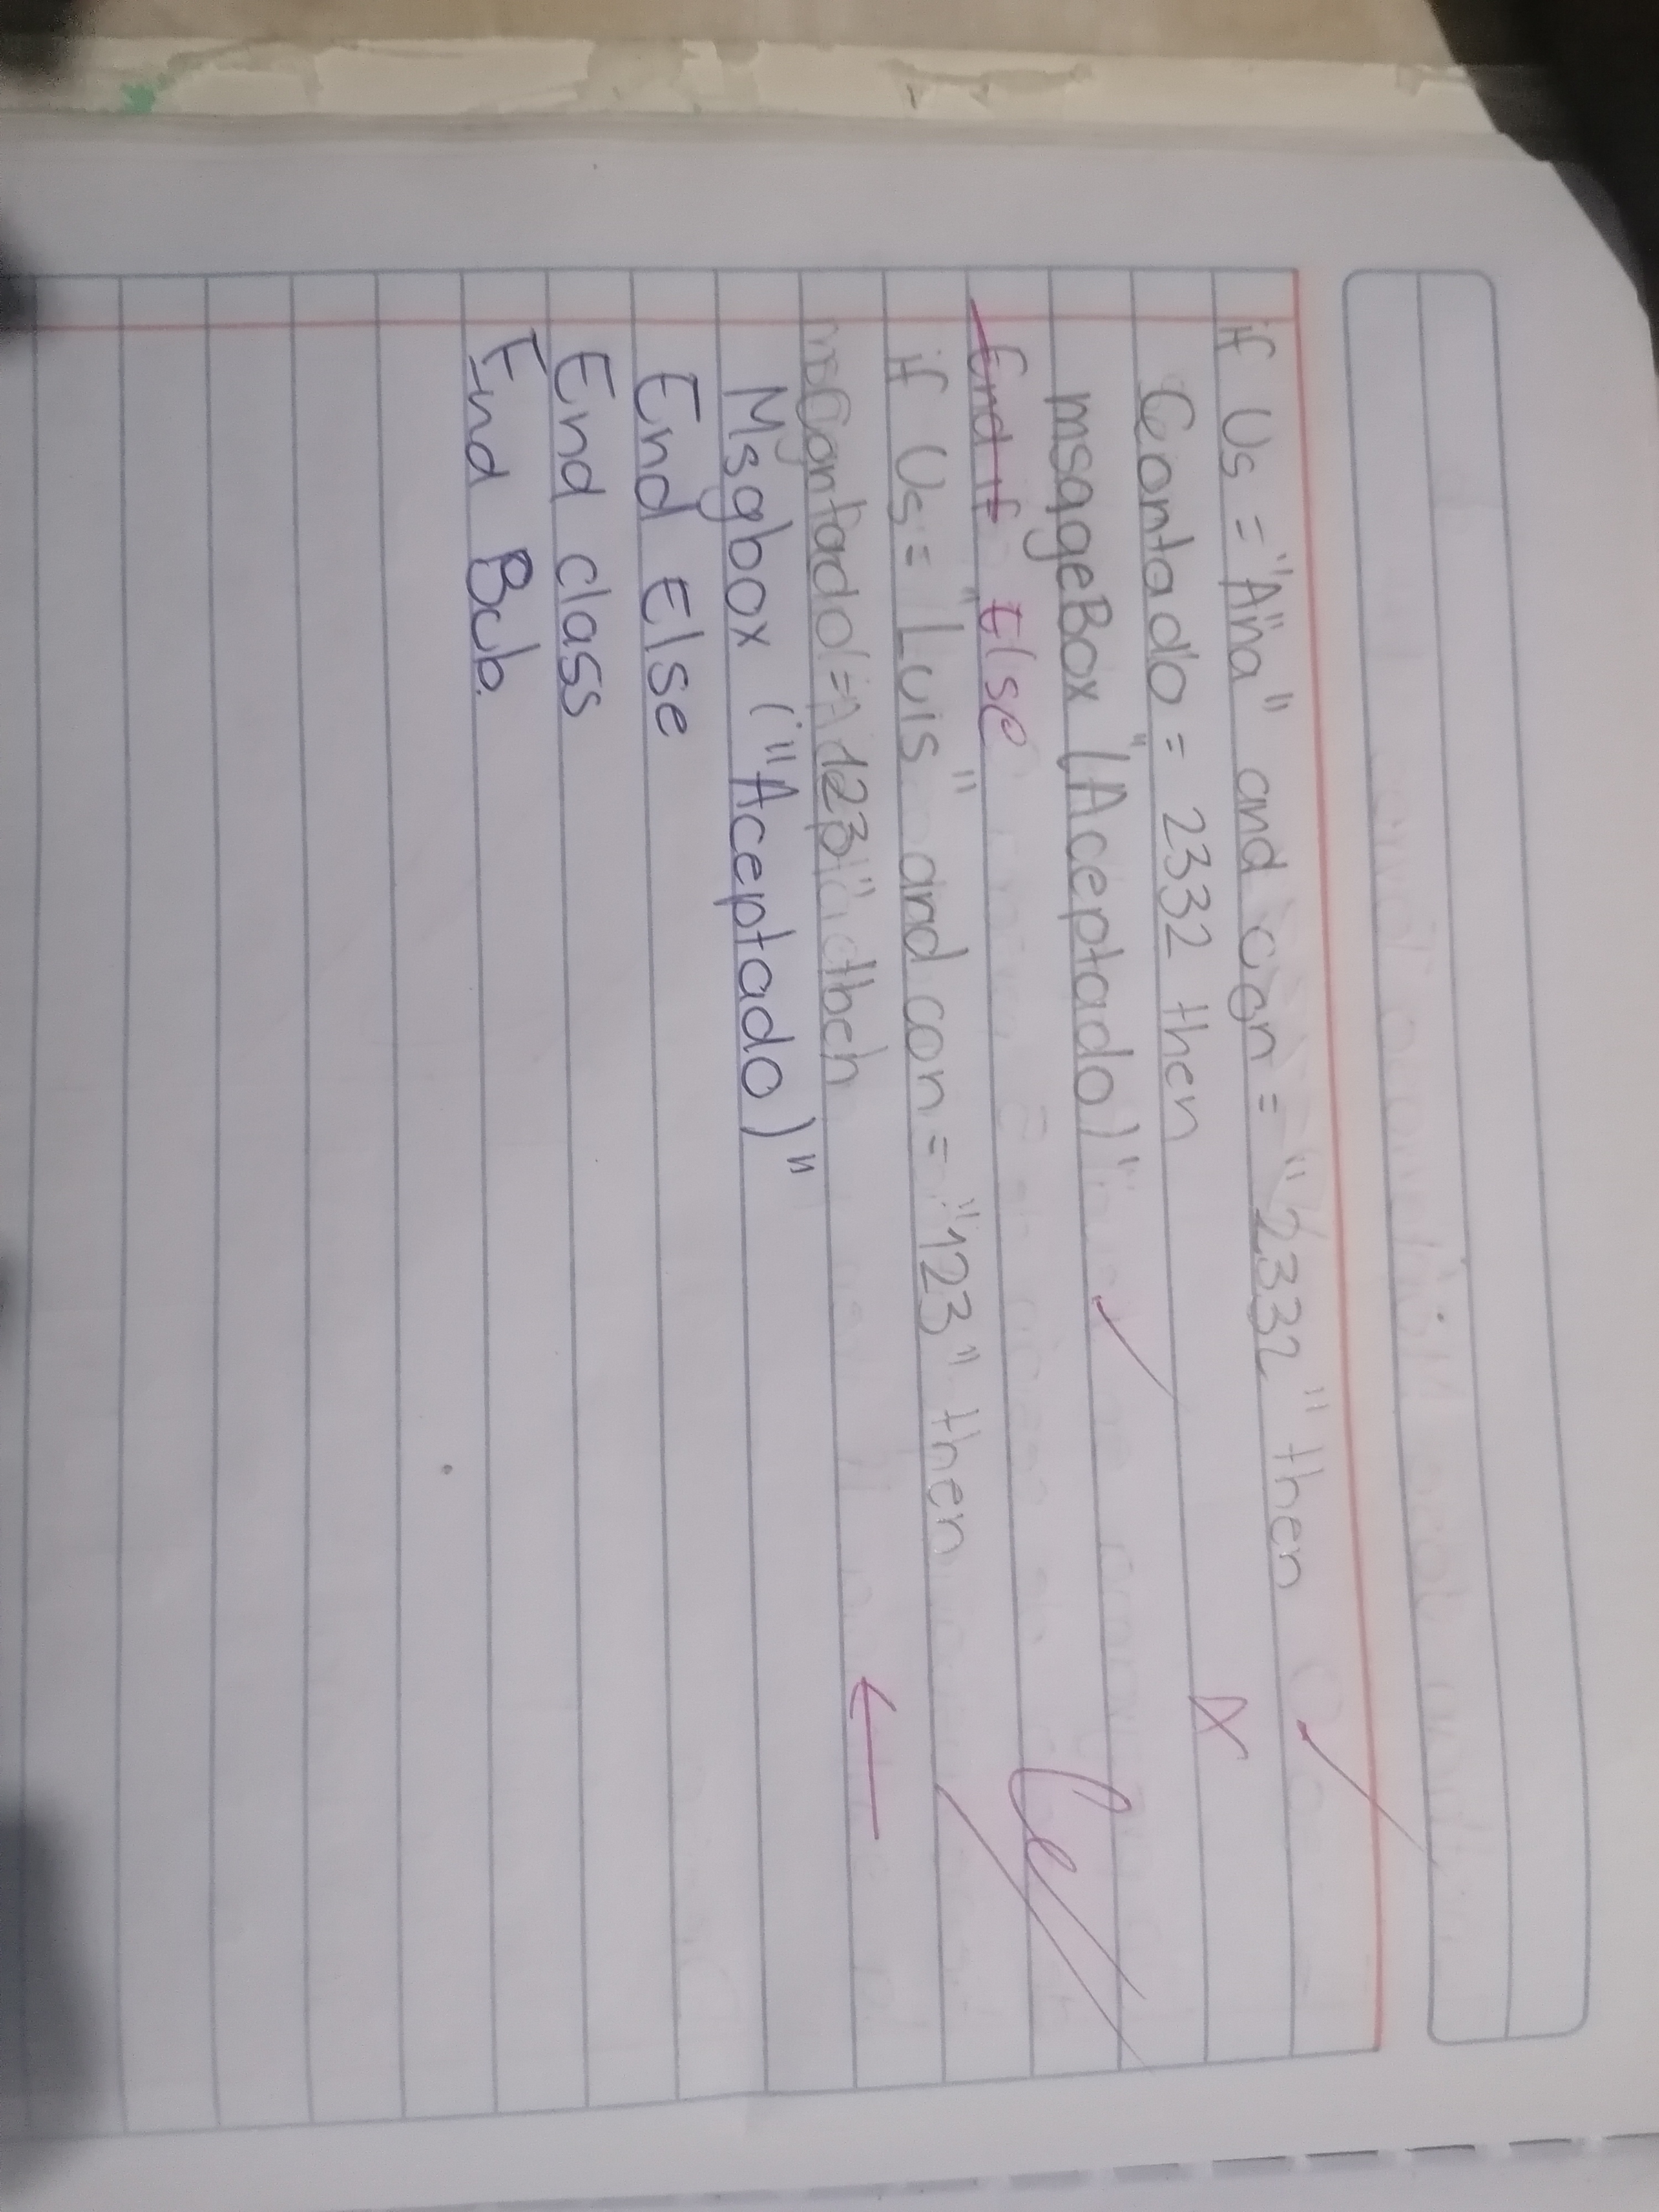 if Us = "Ana" and con = "2332" then
Contado = 2332 then
msgageBox "(Aceptado)"
End if Else
if Us = "Luis" and con = "123" then
Contado = 123" then
Msgbox ("Aceptado)"
End Else
End class
End Bub.